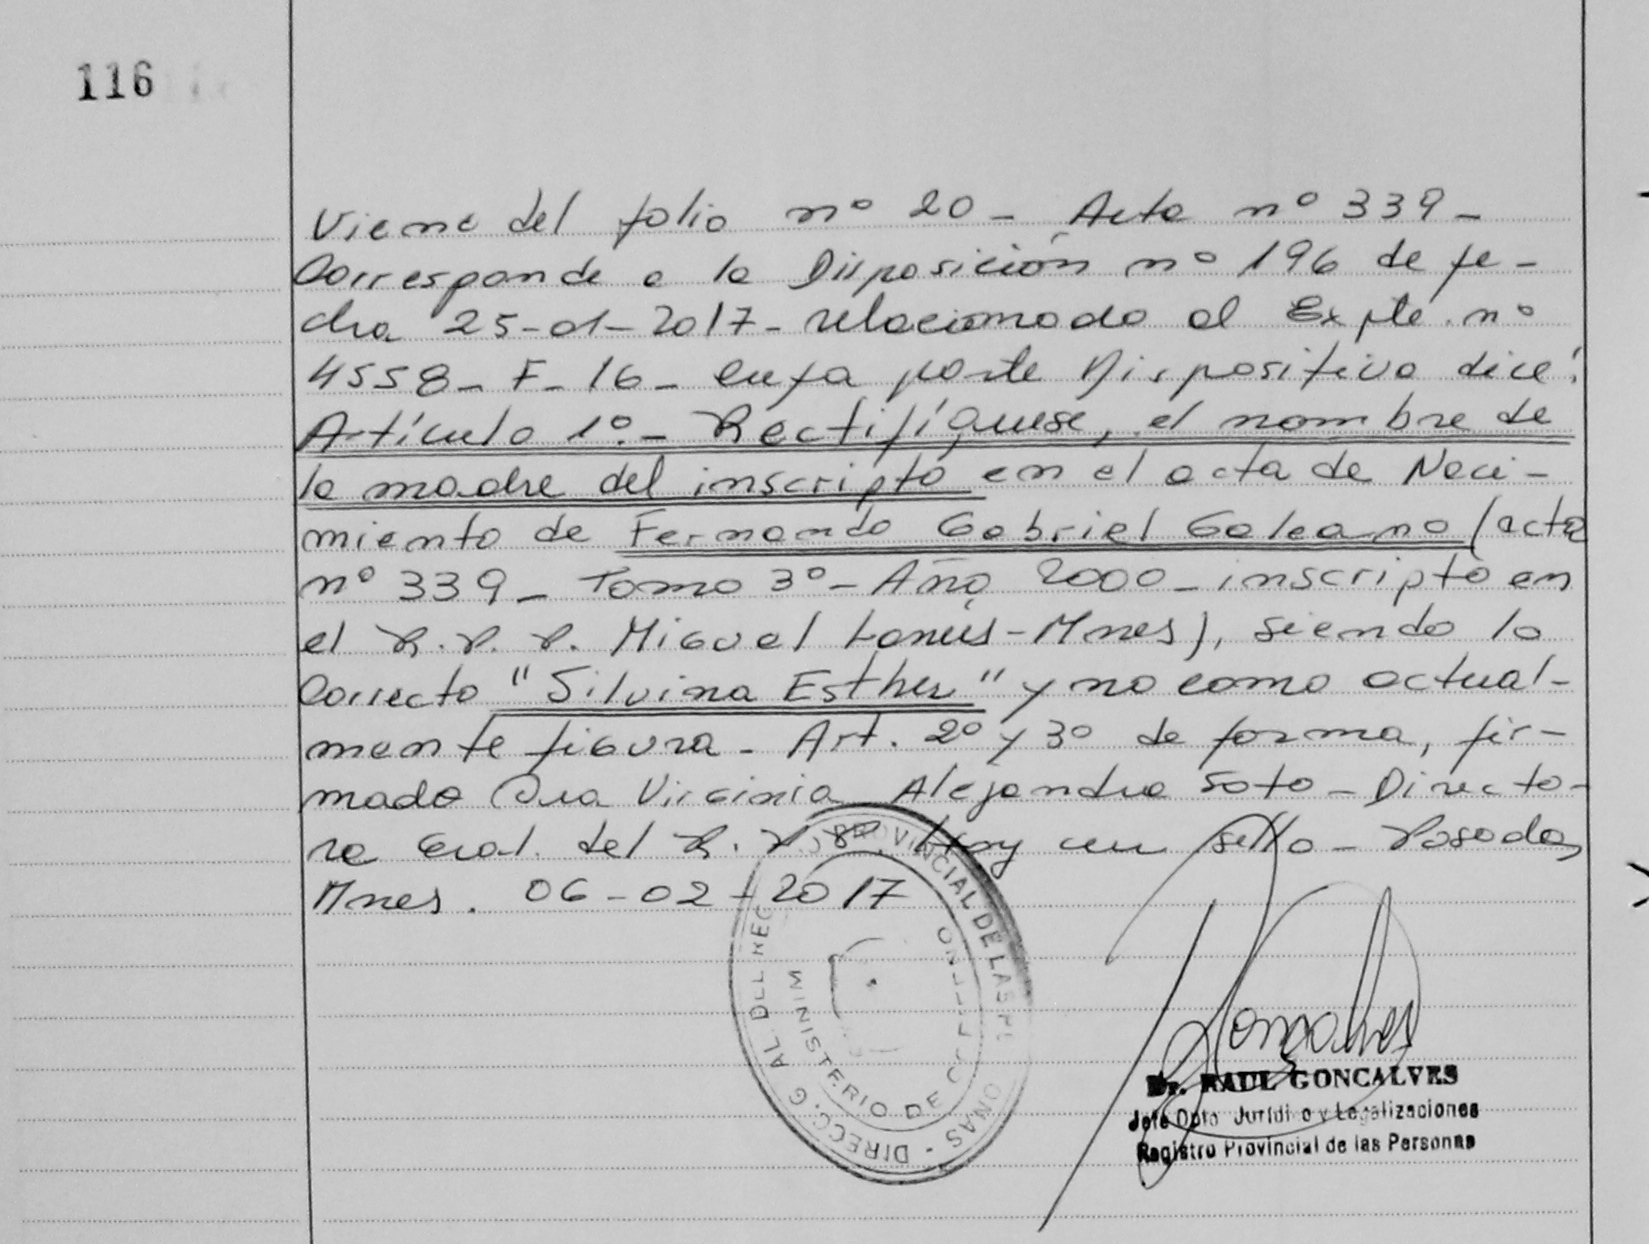 116
Viene del folio nº 20 - Acta nº 339 -
Corresponde a la Disposición nº 196 de fe-
cha 25-01-2017- relacionado al Expte. nº
4558- F- 16- cuya parte Dispositiva dice:
Artículo 1º.- Rectifíquese, el nombre de
la madre del inscripto en el acta de Naci-
miento de Fernando Gabriel Galeano (acta
nº 339- Tomo 3º- Año 2000- inscripto en
el R.P.P. Miguel Lanús-Mnes), siendo lo
Correcto "Silvina Esther" y no como actual-
mente figura- Art. 2º y 3º de forma, fir-
mado Dra Virginia Alejandra Soto- Directo-
ra Gral. del R.P.P. Hay un sello- Posadas
Mnes. 06-02-2017
DIRECC. G. AL. DEL REG. PROVINCIAL DE LAS PE ONAS -
MINISTERIO DE GOBIERNO
Dr. RAUL GONCALVES
Jefe Dpto. Jurídi o y Legalizaciones
Registro Provincial de las Personas